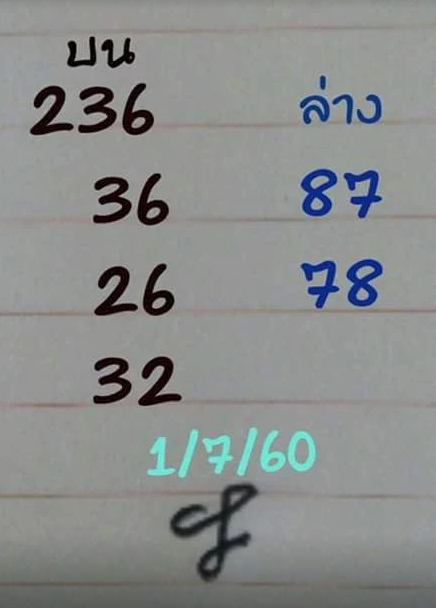 บน
236
ล่าง
36
87
26
78
32
1/7/60